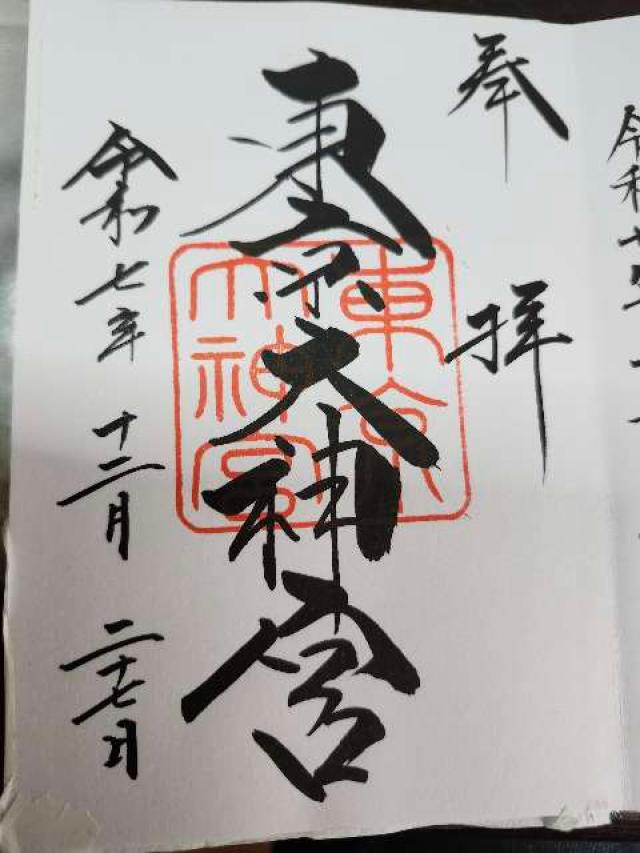 奉拝
東京大神宮
東京
大神宮
令和七年十二月二十七日